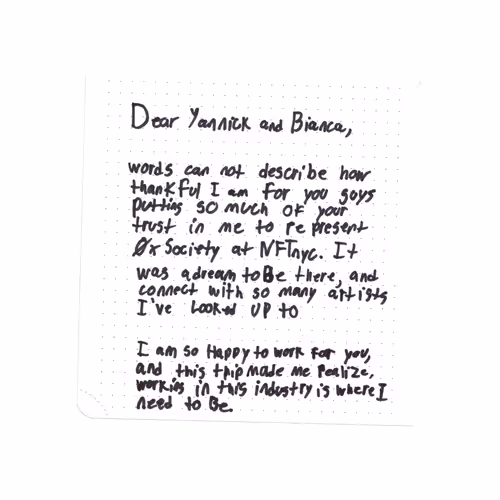 Dear Yannick and Bianca,
words can not describe how
thankful I am for you guys
putting so much of your
trust in me to represent
0x Society at NFTnyc. It
was a dream to Be there, and
connect with so many artists
I've looked up to
I am so Happy to work for you,
and this trip made me realize,
working in this industry is where I
need to Be.